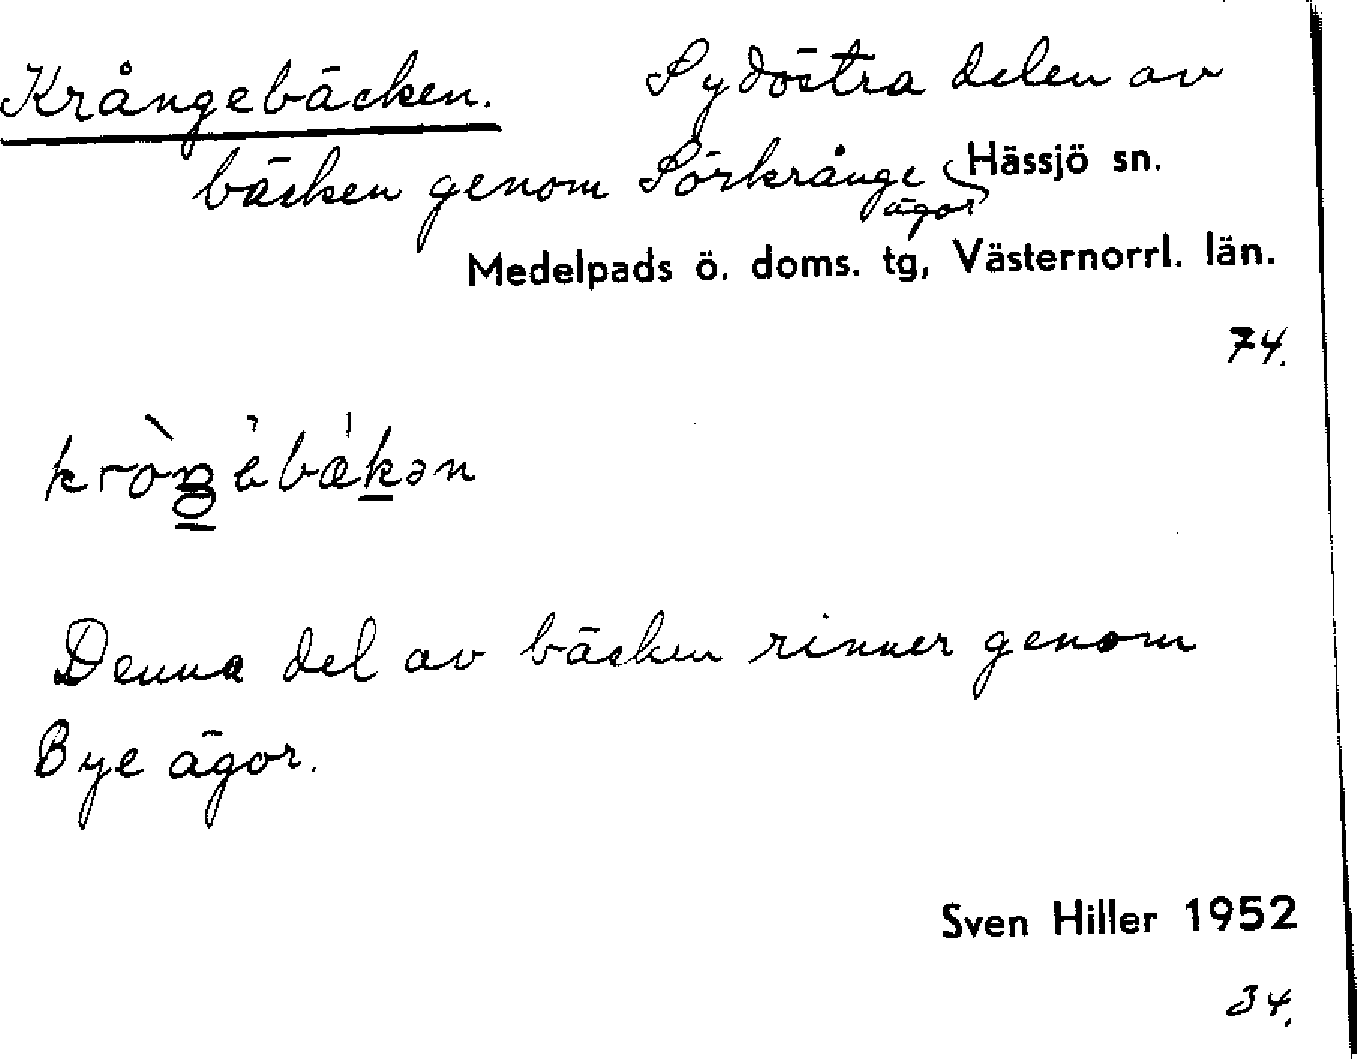 Krångebäcken. Sydöstra delen av
bäcken genom Sörkrånge Hässjö sn.
ägor
Medelpads ö. doms. tg, Västernorrl. län.
74.
Denna del av bäcken rinner genom
Bye ägor.
Sven Hiller 1952
34.